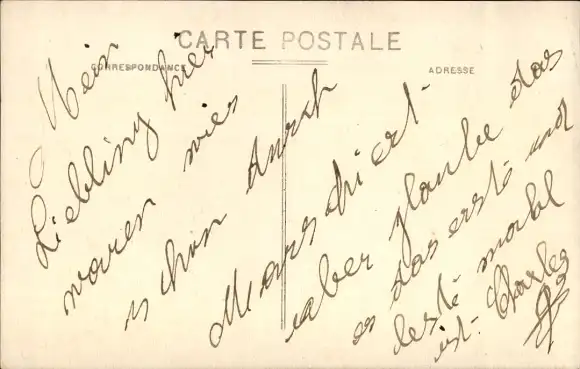 CARTE POSTALE
CORRESPONDANCE
ADRESSE
Mein
Liebling hier
waren wier
schon durch
Marschiert.
aber glaube das
es das erste und
leste mahl
ist. Charles